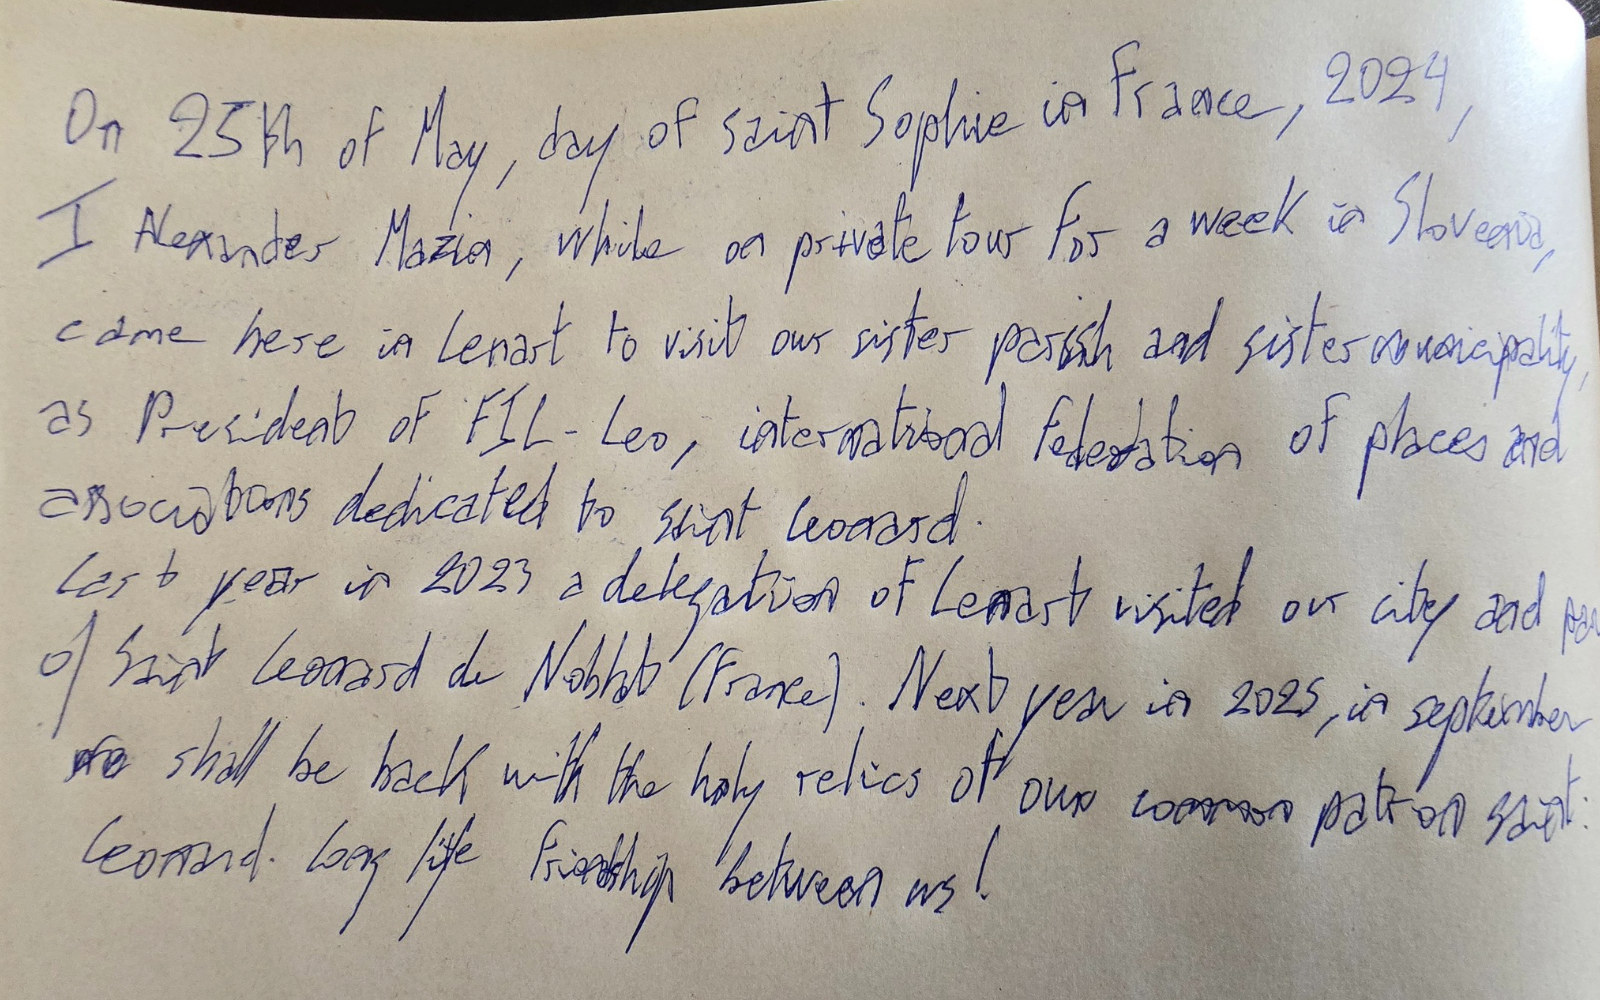 On 25th of May, day of saint Sophie in France, 2024,
I Alexander Mazin, while on private tour for a week in Slovenia,
came here in Lenart to visit our sister parish and sister municipality,
as President of FIL-Leo, international federation of places and
associations dedicated to saint Leonard.
Last year in 2023 a delegation of Lenart visited our city and
of Saint Leonard de Noblat (France). Next year in 2025, in september
we shall be back with the holy relics of our common patron saint:
Leonard. Long life friendship between us!